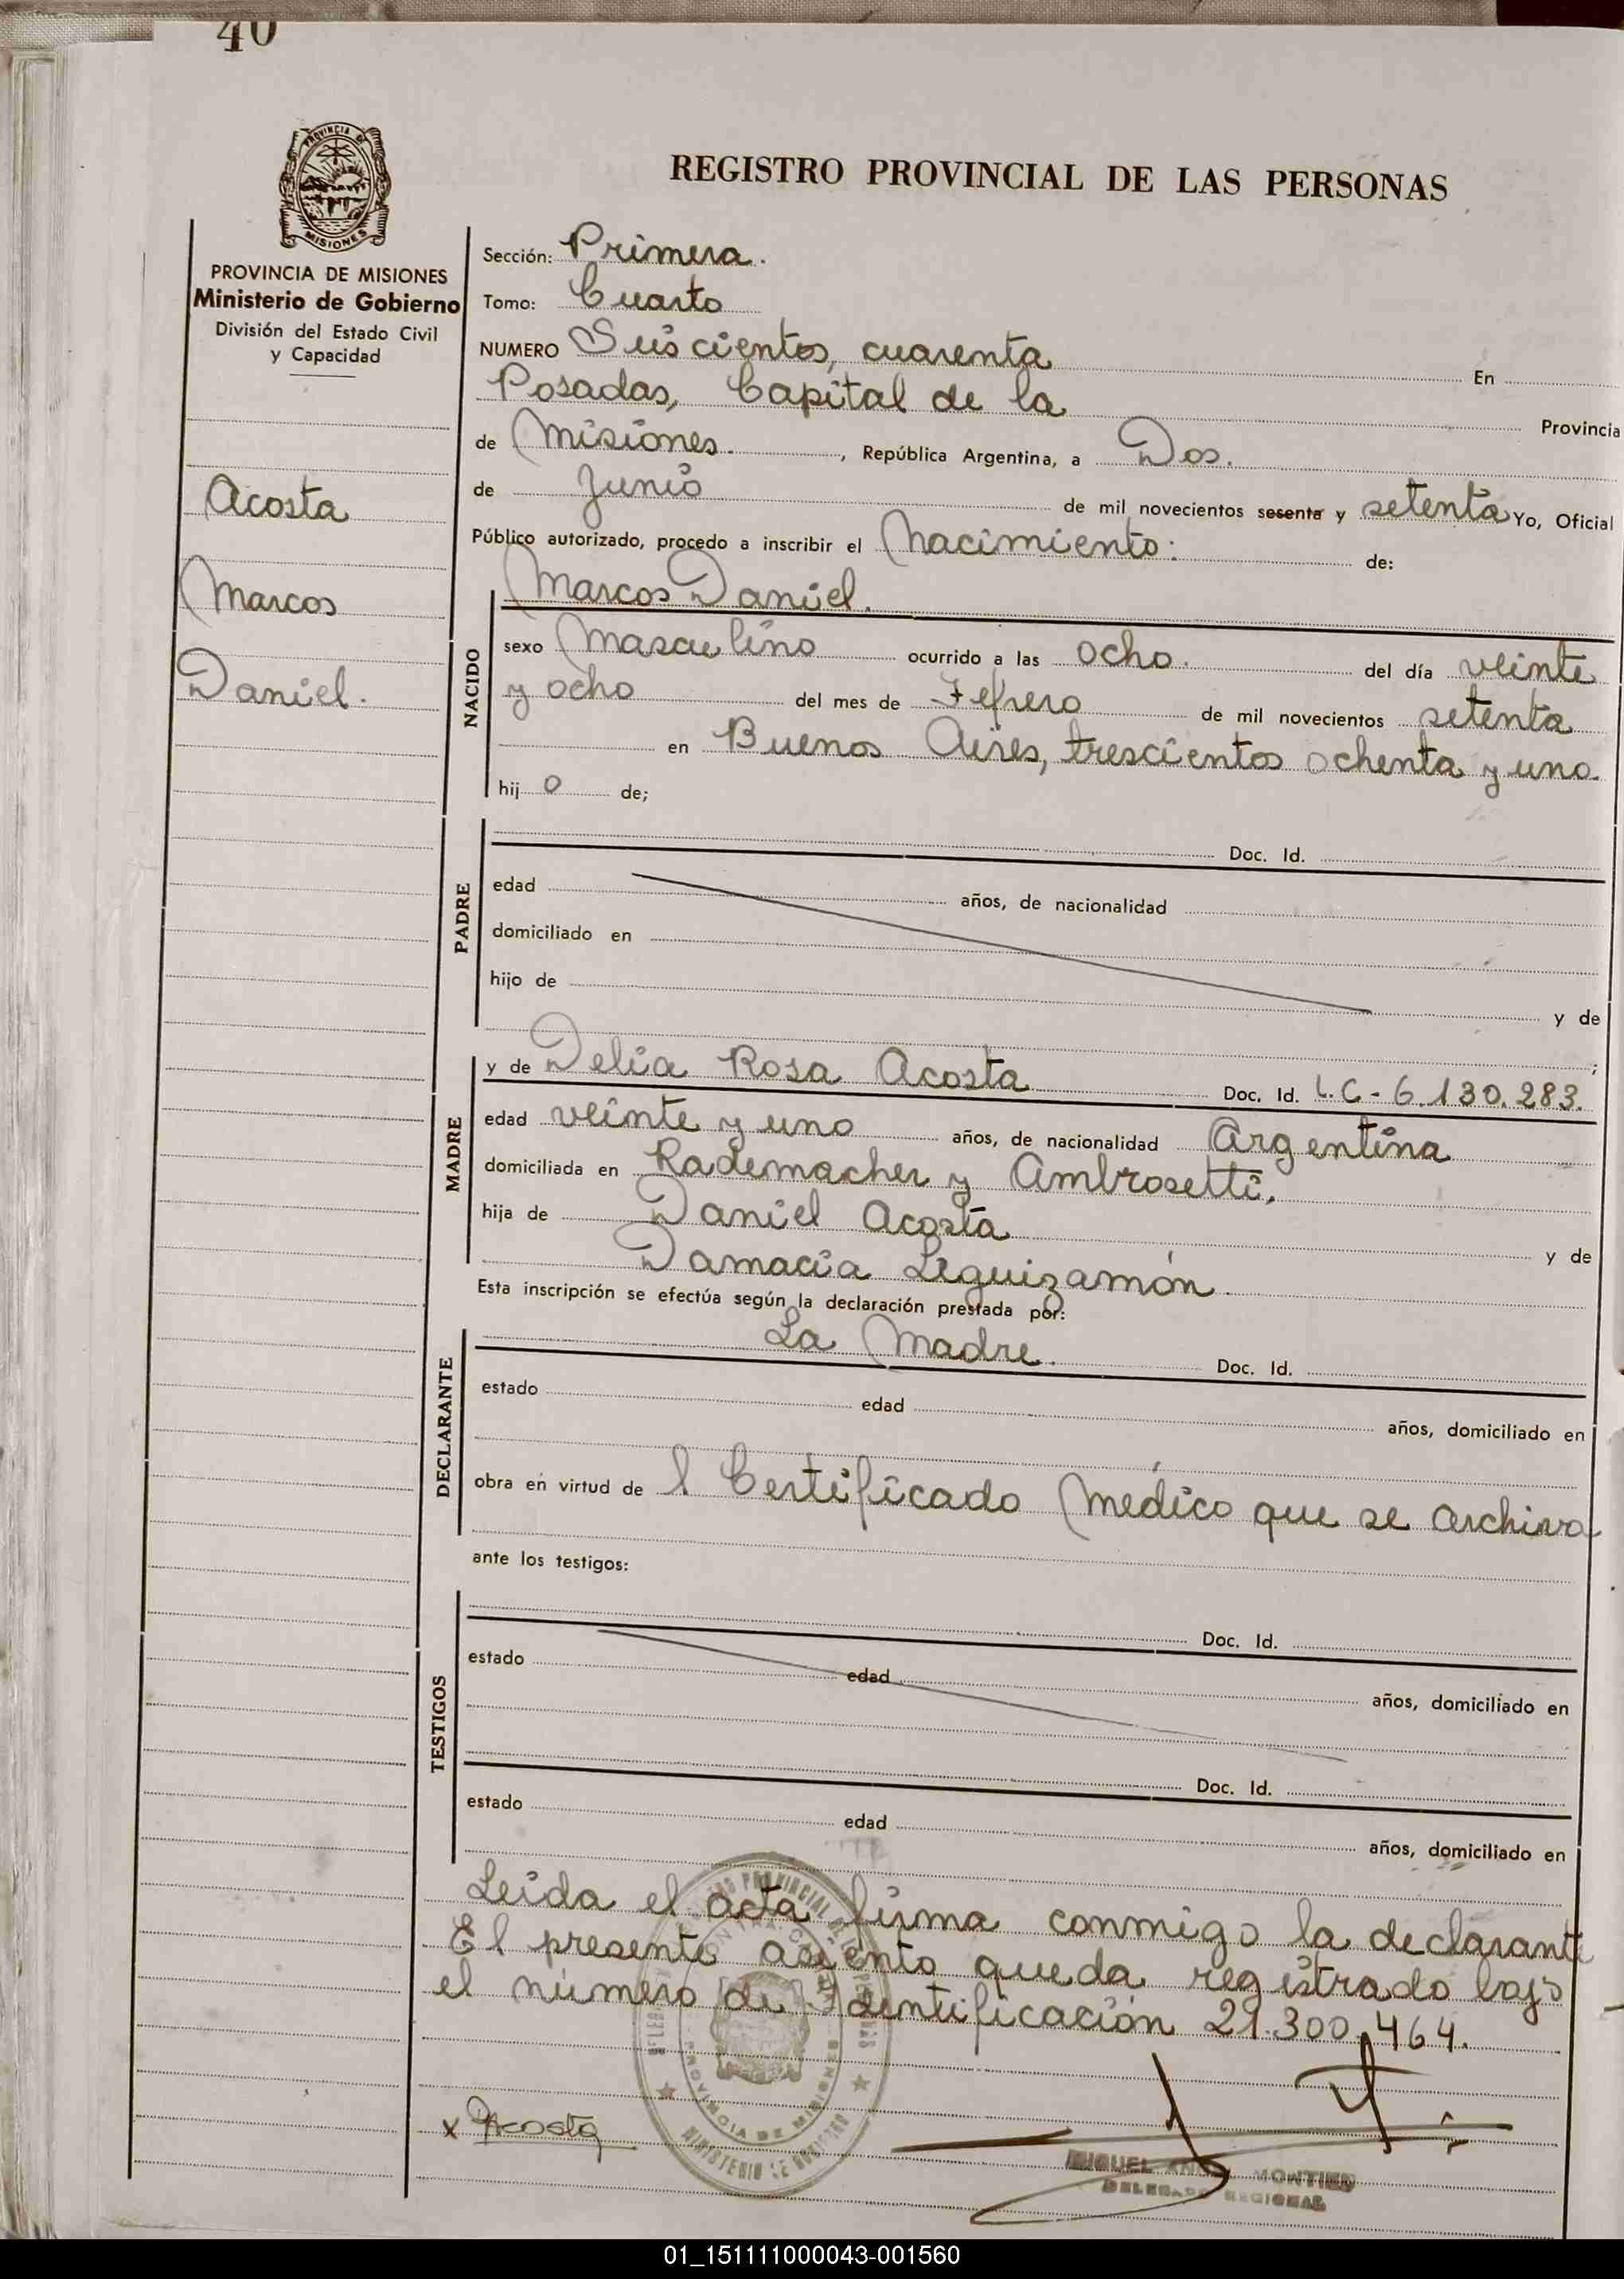 40
PROVINCIA DE
MISIONES
REGISTRO PROVINCIAL DE LAS PERSONAS
PROVINCIA DE MISIONES
Ministerio de Gobierno
División del Estado Civil
y Capacidad
Acosta
Marcos
Daniel.
Sección: Primera.
Tomo: Cuarto
NUMERO Seiscientos, cuarenta En
Posadas, Capital de la Provincia
de Misiones. , República Argentina, a Dos.
de Junio de mil novecientos sesenta y setenta Yo, Oficial
Público autorizado, procedo a inscribir el Nacimiento: de:
Marcos Daniel.
NACIDO
sexo Masculino ocurrido a las ocho. del día veinte
y ocho del mes de Febrero de mil novecientos setenta
en Buenos Aires, trescientos ochenta y uno.
hij o de;
PADRE
Doc. Id.
edad años, de nacionalidad
domiciliado en
hijo de y de
;
MADRE
y de Delia Rosa Acosta Doc. Id. L.C - 6.130.283.
edad veinte y uno años, de nacionalidad Argentina
domiciliada en Rademacher y Ambrosetti.
hija de Daniel Acosta y de
Damacia Leguizamón.
Esta inscripción se efectúa según la declaración prestada por:
DECLARANTE
La Madre. Doc. Id.
estado edad años, domiciliado en
obra en virtud de l Certificado Médico que se archiva
ante los testigos:
TESTIGOS
Doc. Id.
estado edad años, domiciliado en
Doc. Id.
estado edad años, domiciliado en
Leída el acta firma conmigo la declarante
El presente asiento queda registrado bajo
el número de Identificación 21.300.464.
PROVINCIA DE MISIONES
MINISTERIO DE GOBIERNO
x Acosta
MIGUEL MONTIEL
DELEGADO REGIONAL
01_151111000043-001560